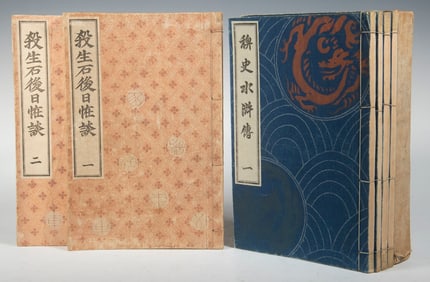 殺生石後日恠談
二
殺生石後日恠談
一
稗史水滸傳
一